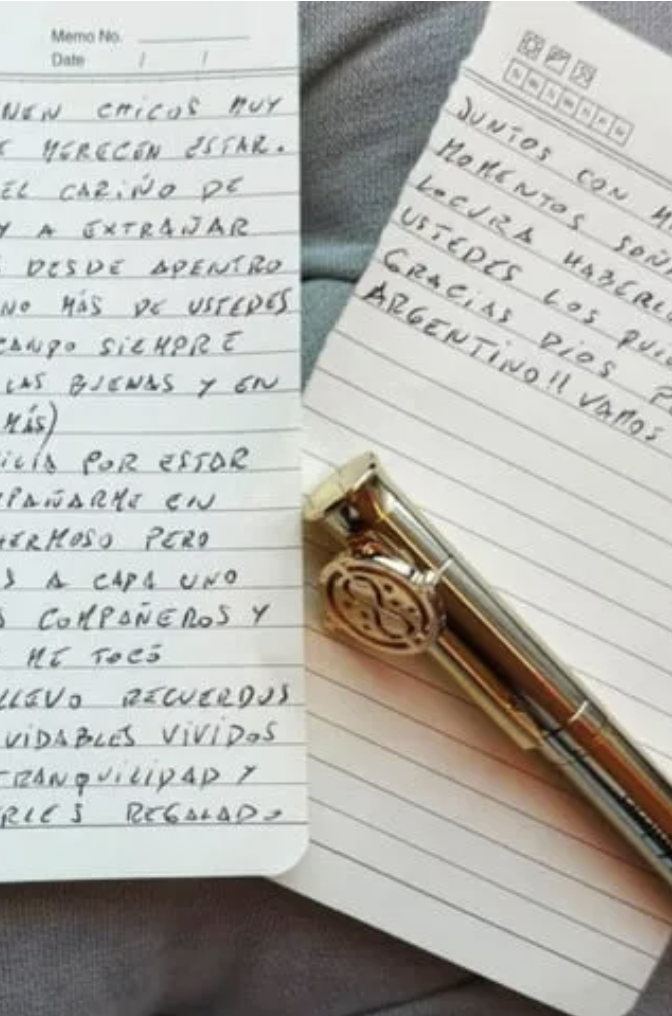 Memo No.
Date / /
NEN CHICOS MUY
E MERECEN ESTAR.
EL CARIÑO DE
Y A EXTRAÑAR
DESDE ADENTRO
NO MÁS DE USTEDES
CANDO SIEMPRE
LAS BUENAS Y EN
MÁS)
ILIA POR ESTAR
PAÑARME EN
HERMOSO PERO
S A CADA UNO
S COMPAÑEROS Y
ME TOCÓ
LLEVO RECUERDOS
VIDABLES VIVIDOS
TRANQUILIDAD Y
RLES REGALADO
S M T W T F S
JUNTOS CON
MOMENTOS SOÑ
LOCURA HABERL
USTEDES LOS QUI
GRACIAS DIOS P
ARGENTINO!! VAMOS